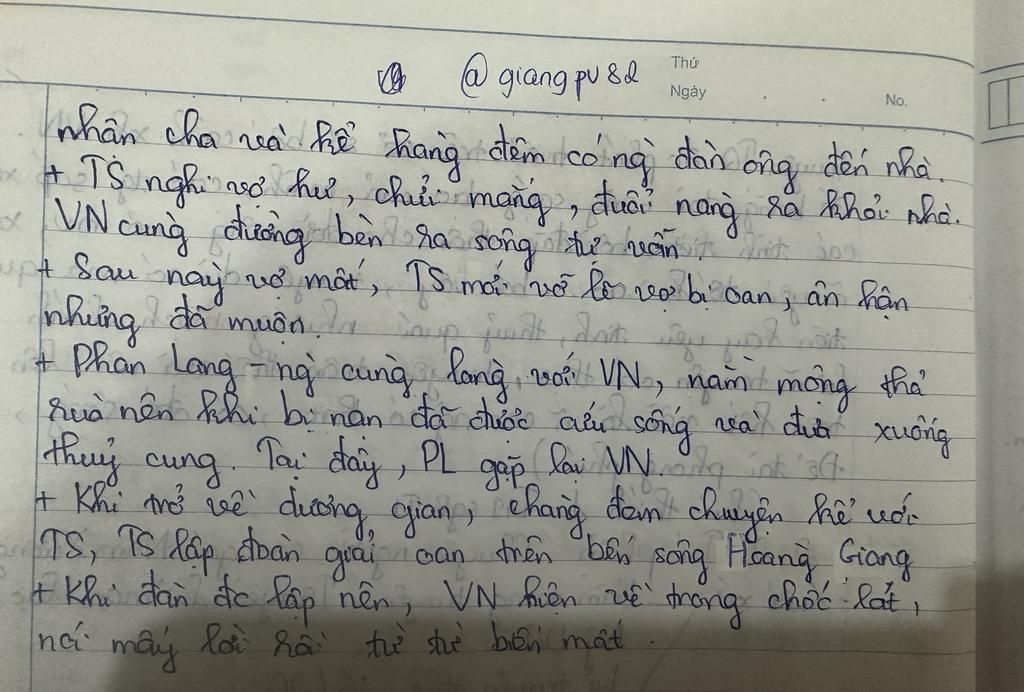 @giangpv82
Thứ
Ngày
No.
nhân cha và kể hàng đêm có ng đàn ông đến nhà.
+ TS nghi vợ hư, chửi mắng, đuổi nàng ra khỏi nhà.
VN cùng đường bèn ra sông tự vẫn.
+ Sau này vợ mất, TS mới vỡ lẽ vợ bị oan, ân hận
nhưng đã muộn.
+ Phan Lang - ng cùng làng với VN, nằm mộng thả
rùa nên khi bị nạn đã được cứu sống và đưa xuống
thuỷ cung. Tại đây, PL gặp lại VN.
+ Khi trở về dương gian, chàng đem chuyện kể với
TS, TS lập đoàn giải oan trên bến sông Hoàng Giang
+ Khi đàn đc lập nên, VN hiện về trong chốc lát,
nói mấy lời rồi từ từ biến mất.